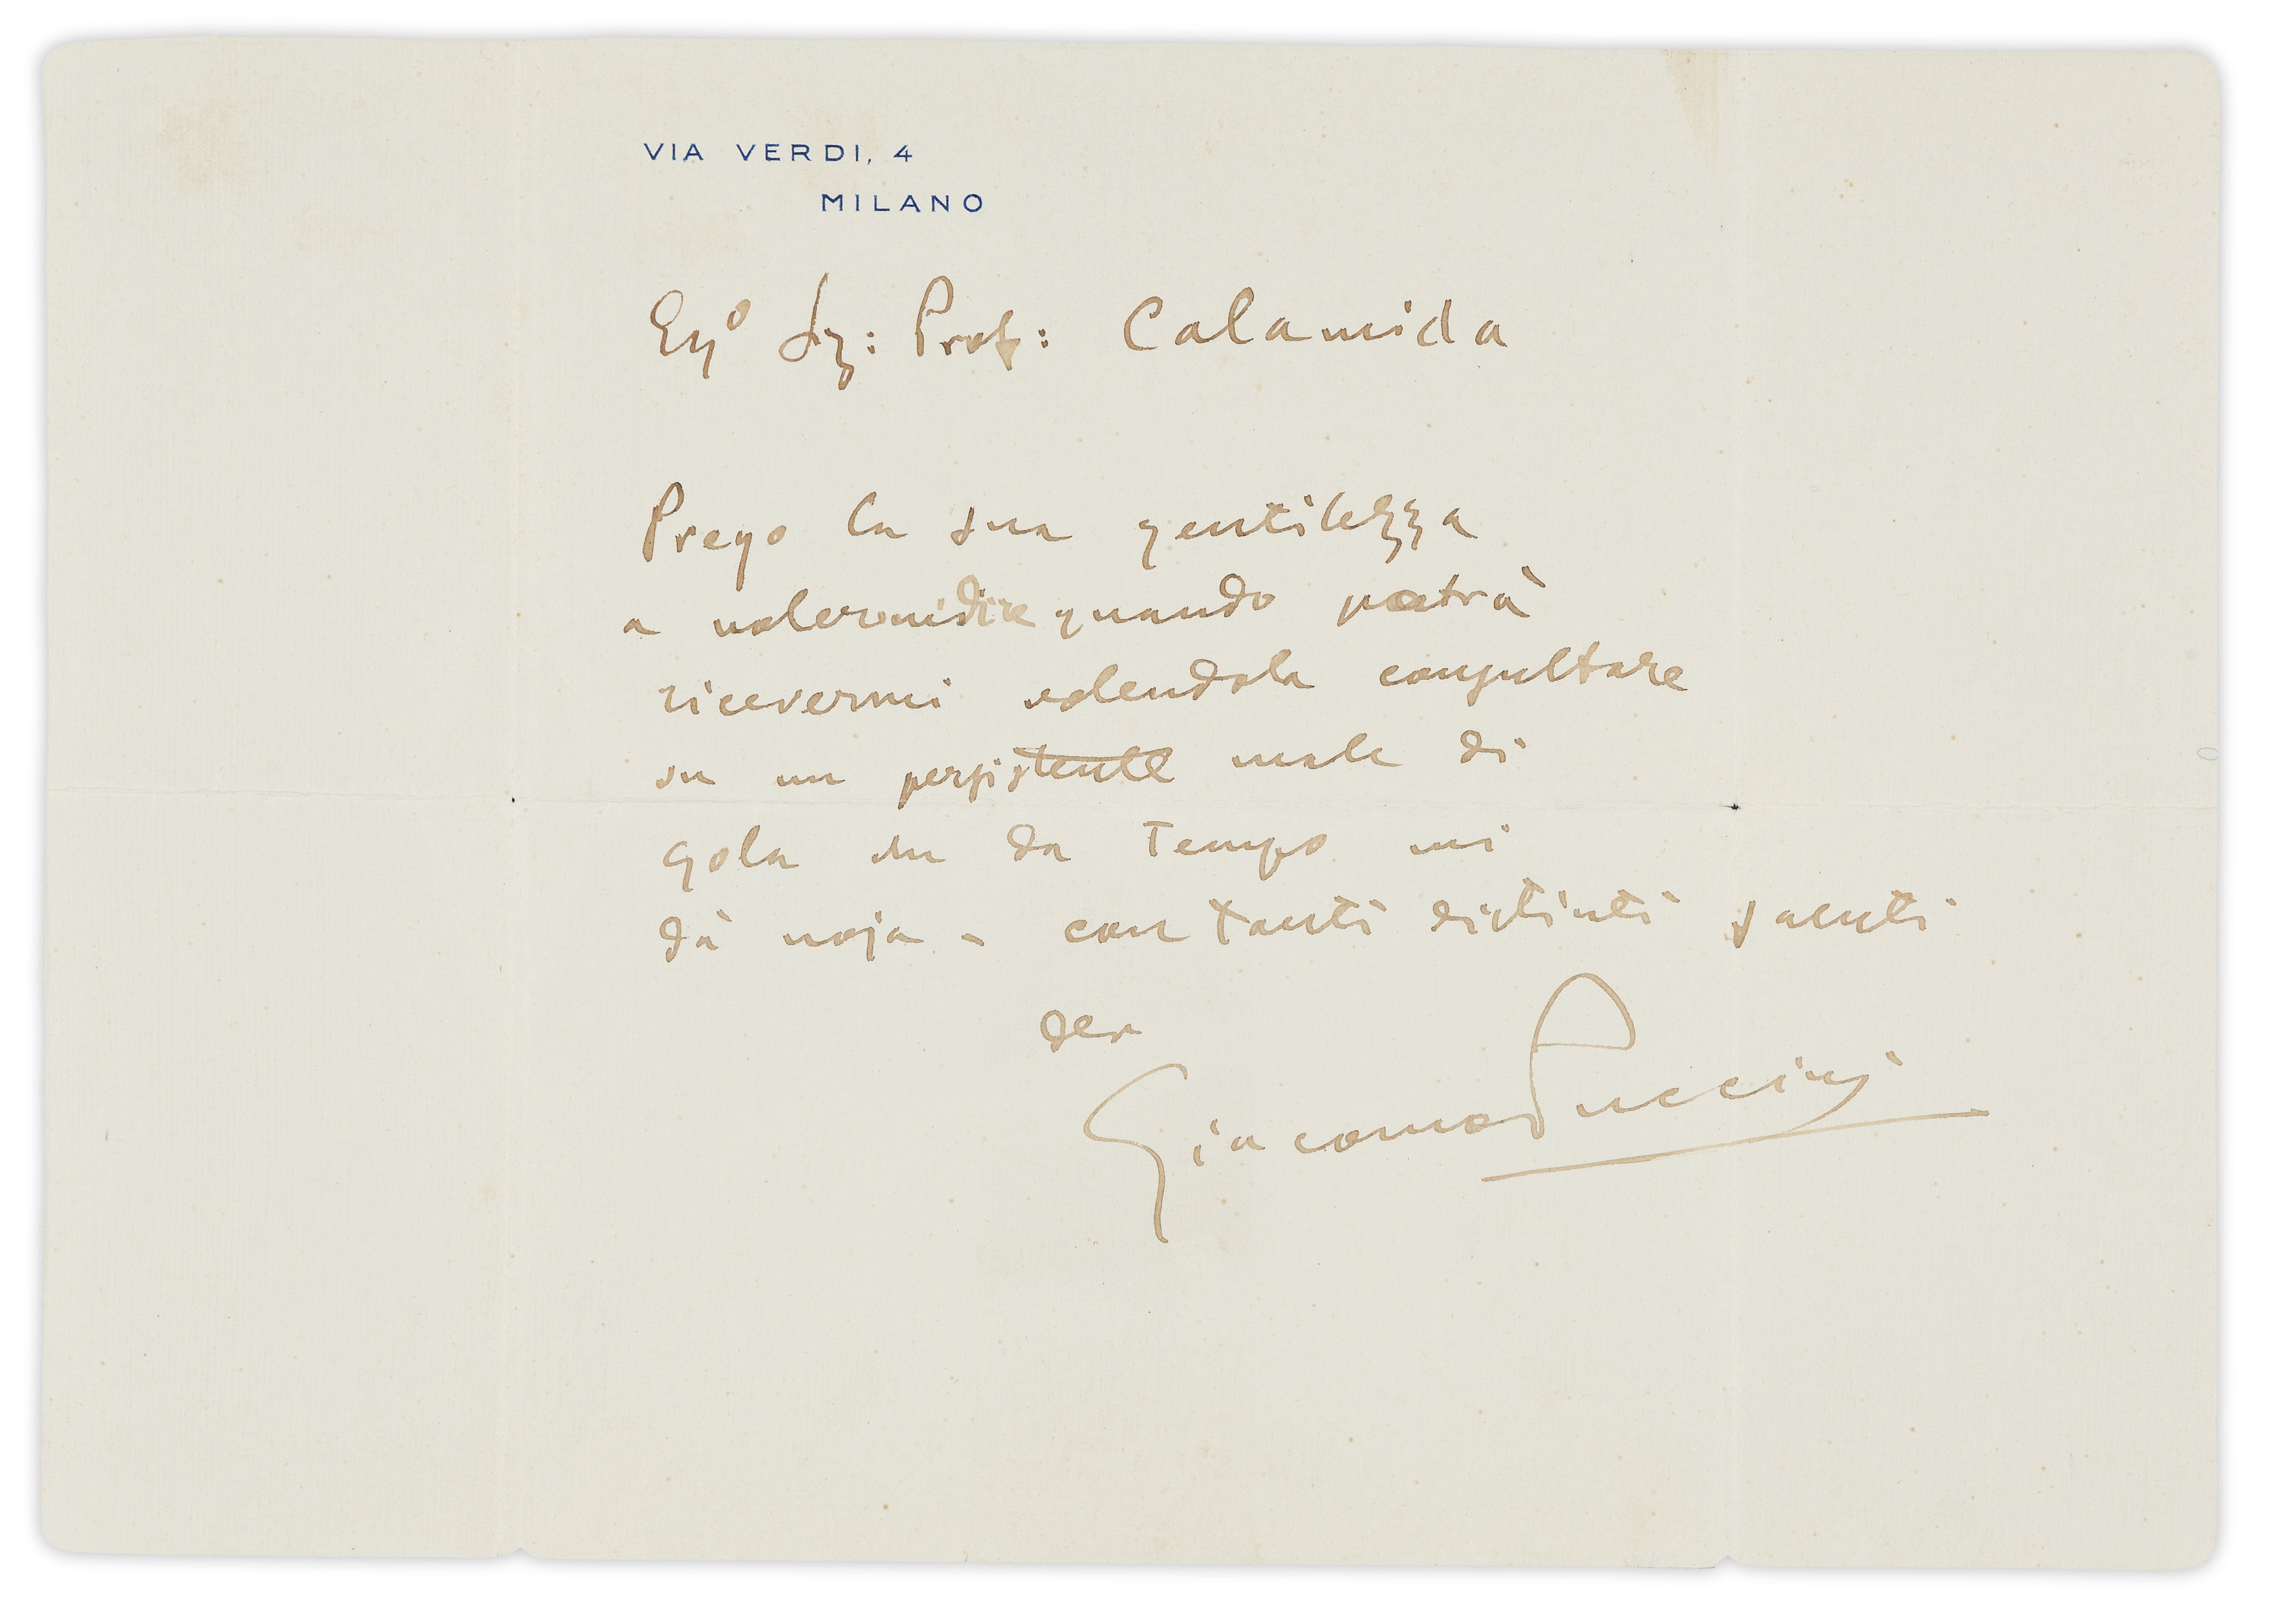 VIA VERDI, 4
MILANO
Egº Sig: Prof: Calamida
Prego la sua gentilezza
a volermi dire quando potrà
ricevermi volendola consultare
su un persistente male di
gola che da tempo mi
dà noja - con tanti distinti saluti
dev
Giacomo Puccini